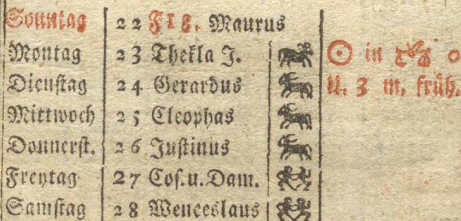 Sonntag 22 F 18. Maurus
Montag 23 Thekla J. ☉ in
Dienstag 24 Gerardus U. 3 m. früh.
Mittwoch 25 Cleophas
Donnerst. 26 Justinus
Freytag 27 Cos. u. Dam.
Samstag 28 Wenceslaus